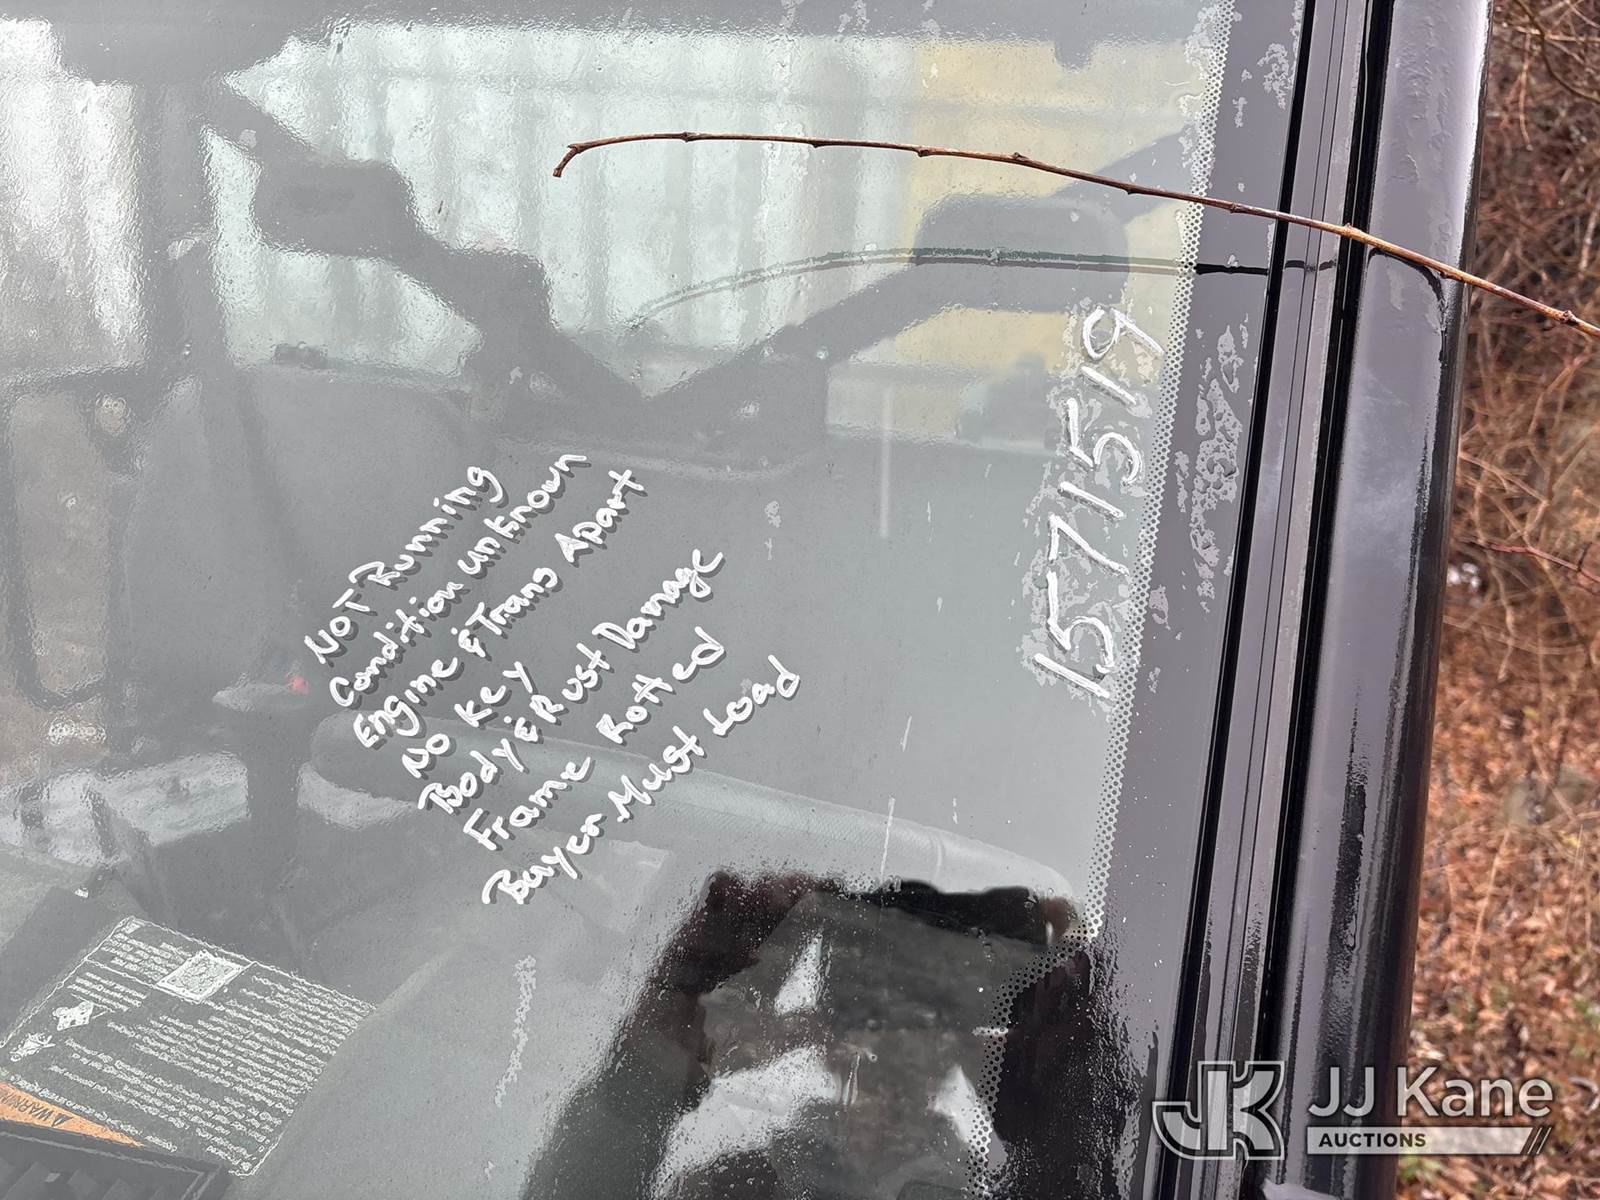 Not Running
Condition unknown
Engine & Trans Apart
No Key
Body & Rust Damage
Frame Rotted
Buyer Must Load
1571519
WARNING
JK JJ Kane
AUCTIONS